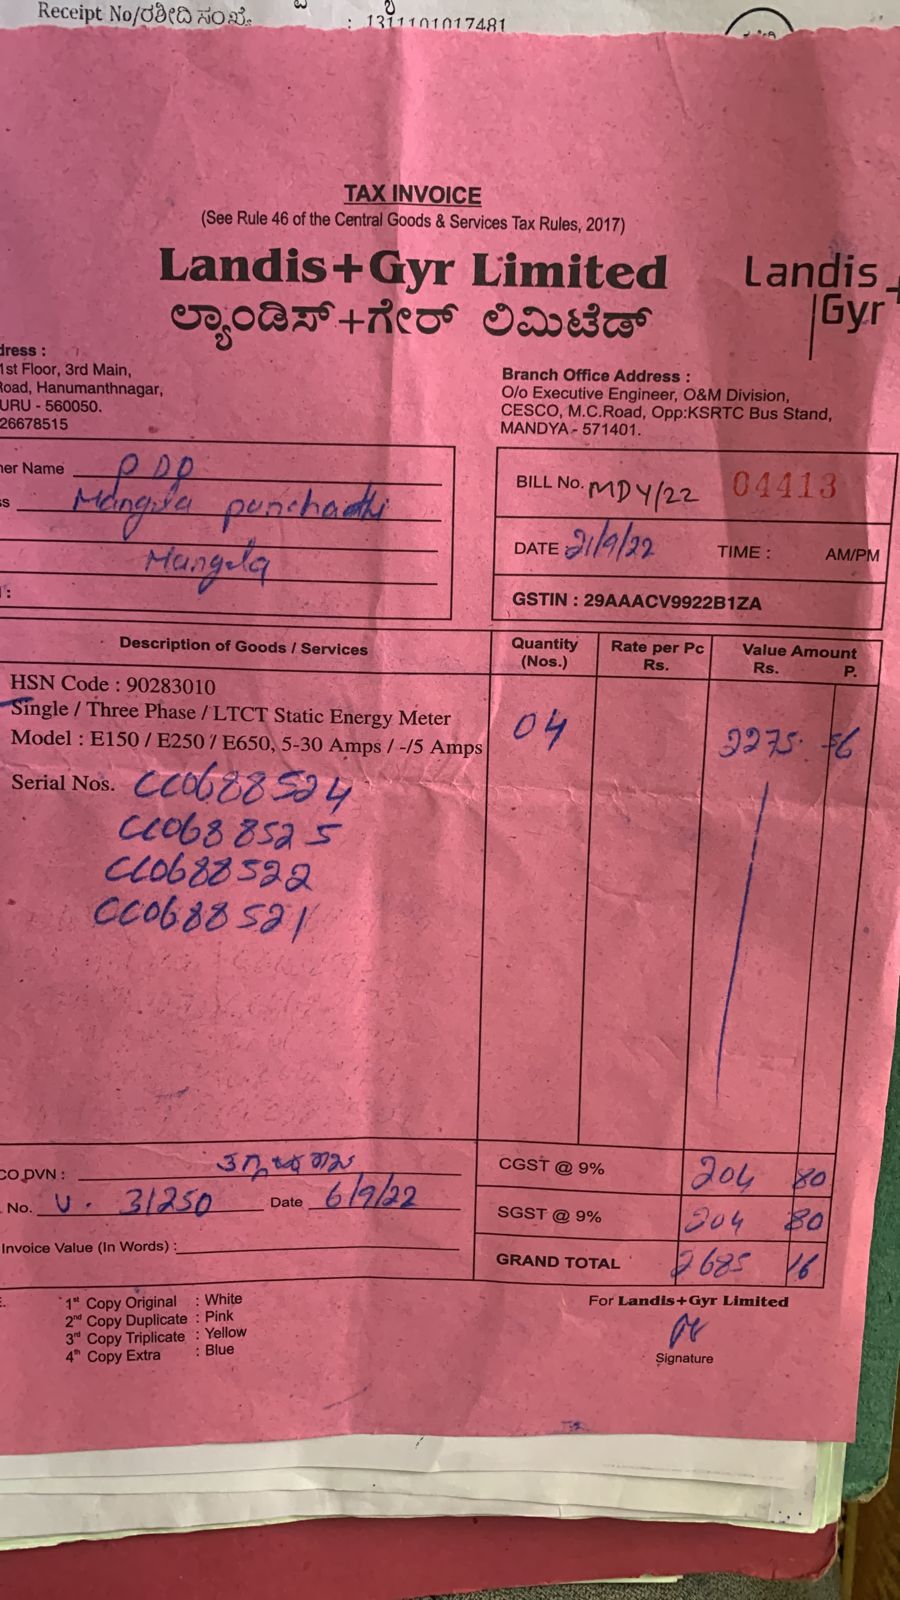 Receipt No/ರಶೀದಿ ಸಂಖ್ಯೆ : 1311101017481
TAX INVOICE
(See Rule 46 of the Central Goods & Services Tax Rules, 2017)
Landis+Gyr Limited
ಲ್ಯಾಂಡಿಸ್+ಗೇರ್ ಲಿಮಿಟೆಡ್
Landis+
Gyr
dress :
1st Floor, 3rd Main,
Road, Hanumanthnagar,
URU - 560050.
26678515
Branch Office Address :
O/o Executive Engineer, O&M Division,
CESCO, M.C.Road, Opp:KSRTC Bus Stand,
MANDYA - 571401.
er Name PDO
s Mangala panchathi
Mangala
:
BILL No. MDY/22 04413
DATE 21/9/22 TIME : AM/PM
GSTIN : 29AAACV9922B1ZA
Description of Goods / Services Quantity (Nos.) Rate per Pc Rs. Value Amount Rs. P.
HSN Code : 90283010
Single / Three Phase / LTCT Static Energy Meter
Model : E150 / E250 / E650, 5-30 Amps / -/5 Amps 04 2275 56
Serial Nos. CC0688524
CC0688525
CC0688522
CC0688521
CO DVN :
No. V. 31250 Date 6/9/22
Invoice Value (In Words) :
CGST @ 9% 204 80
SGST @ 9% 204 80
GRAND TOTAL 2685 16
1st Copy Original : White
2nd Copy Duplicate : Pink
3rd Copy Triplicate : Yellow
4th Copy Extra : Blue
For Landis+Gyr Limited
Signature